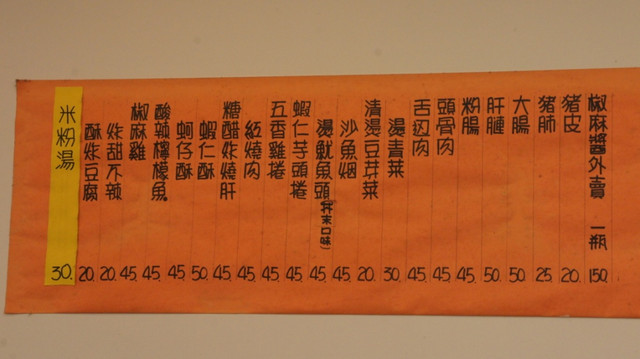 椒麻醬外賣 一瓶 150.
豬皮 20.
豬肺 25
大腸 50.
肝腱 50
粉腸 45.
頭骨肉 45.
舌边肉 45.
燙青菜 30.
清燙豆芽菜 20.
沙魚烟 45
燙魷魚頭(芥末口味) 45.
蝦仁芋頭捲 45.
五香雞捲 45.
紅燒肉 45.
糖醋炸燒肝 45.
蝦仁酥 50.
蚵仔酥 45.
酸辣檸檬魚 45.
椒麻雞 45.
炸甜不辣 20.
酥炸豆腐 20.
米粉湯 30.